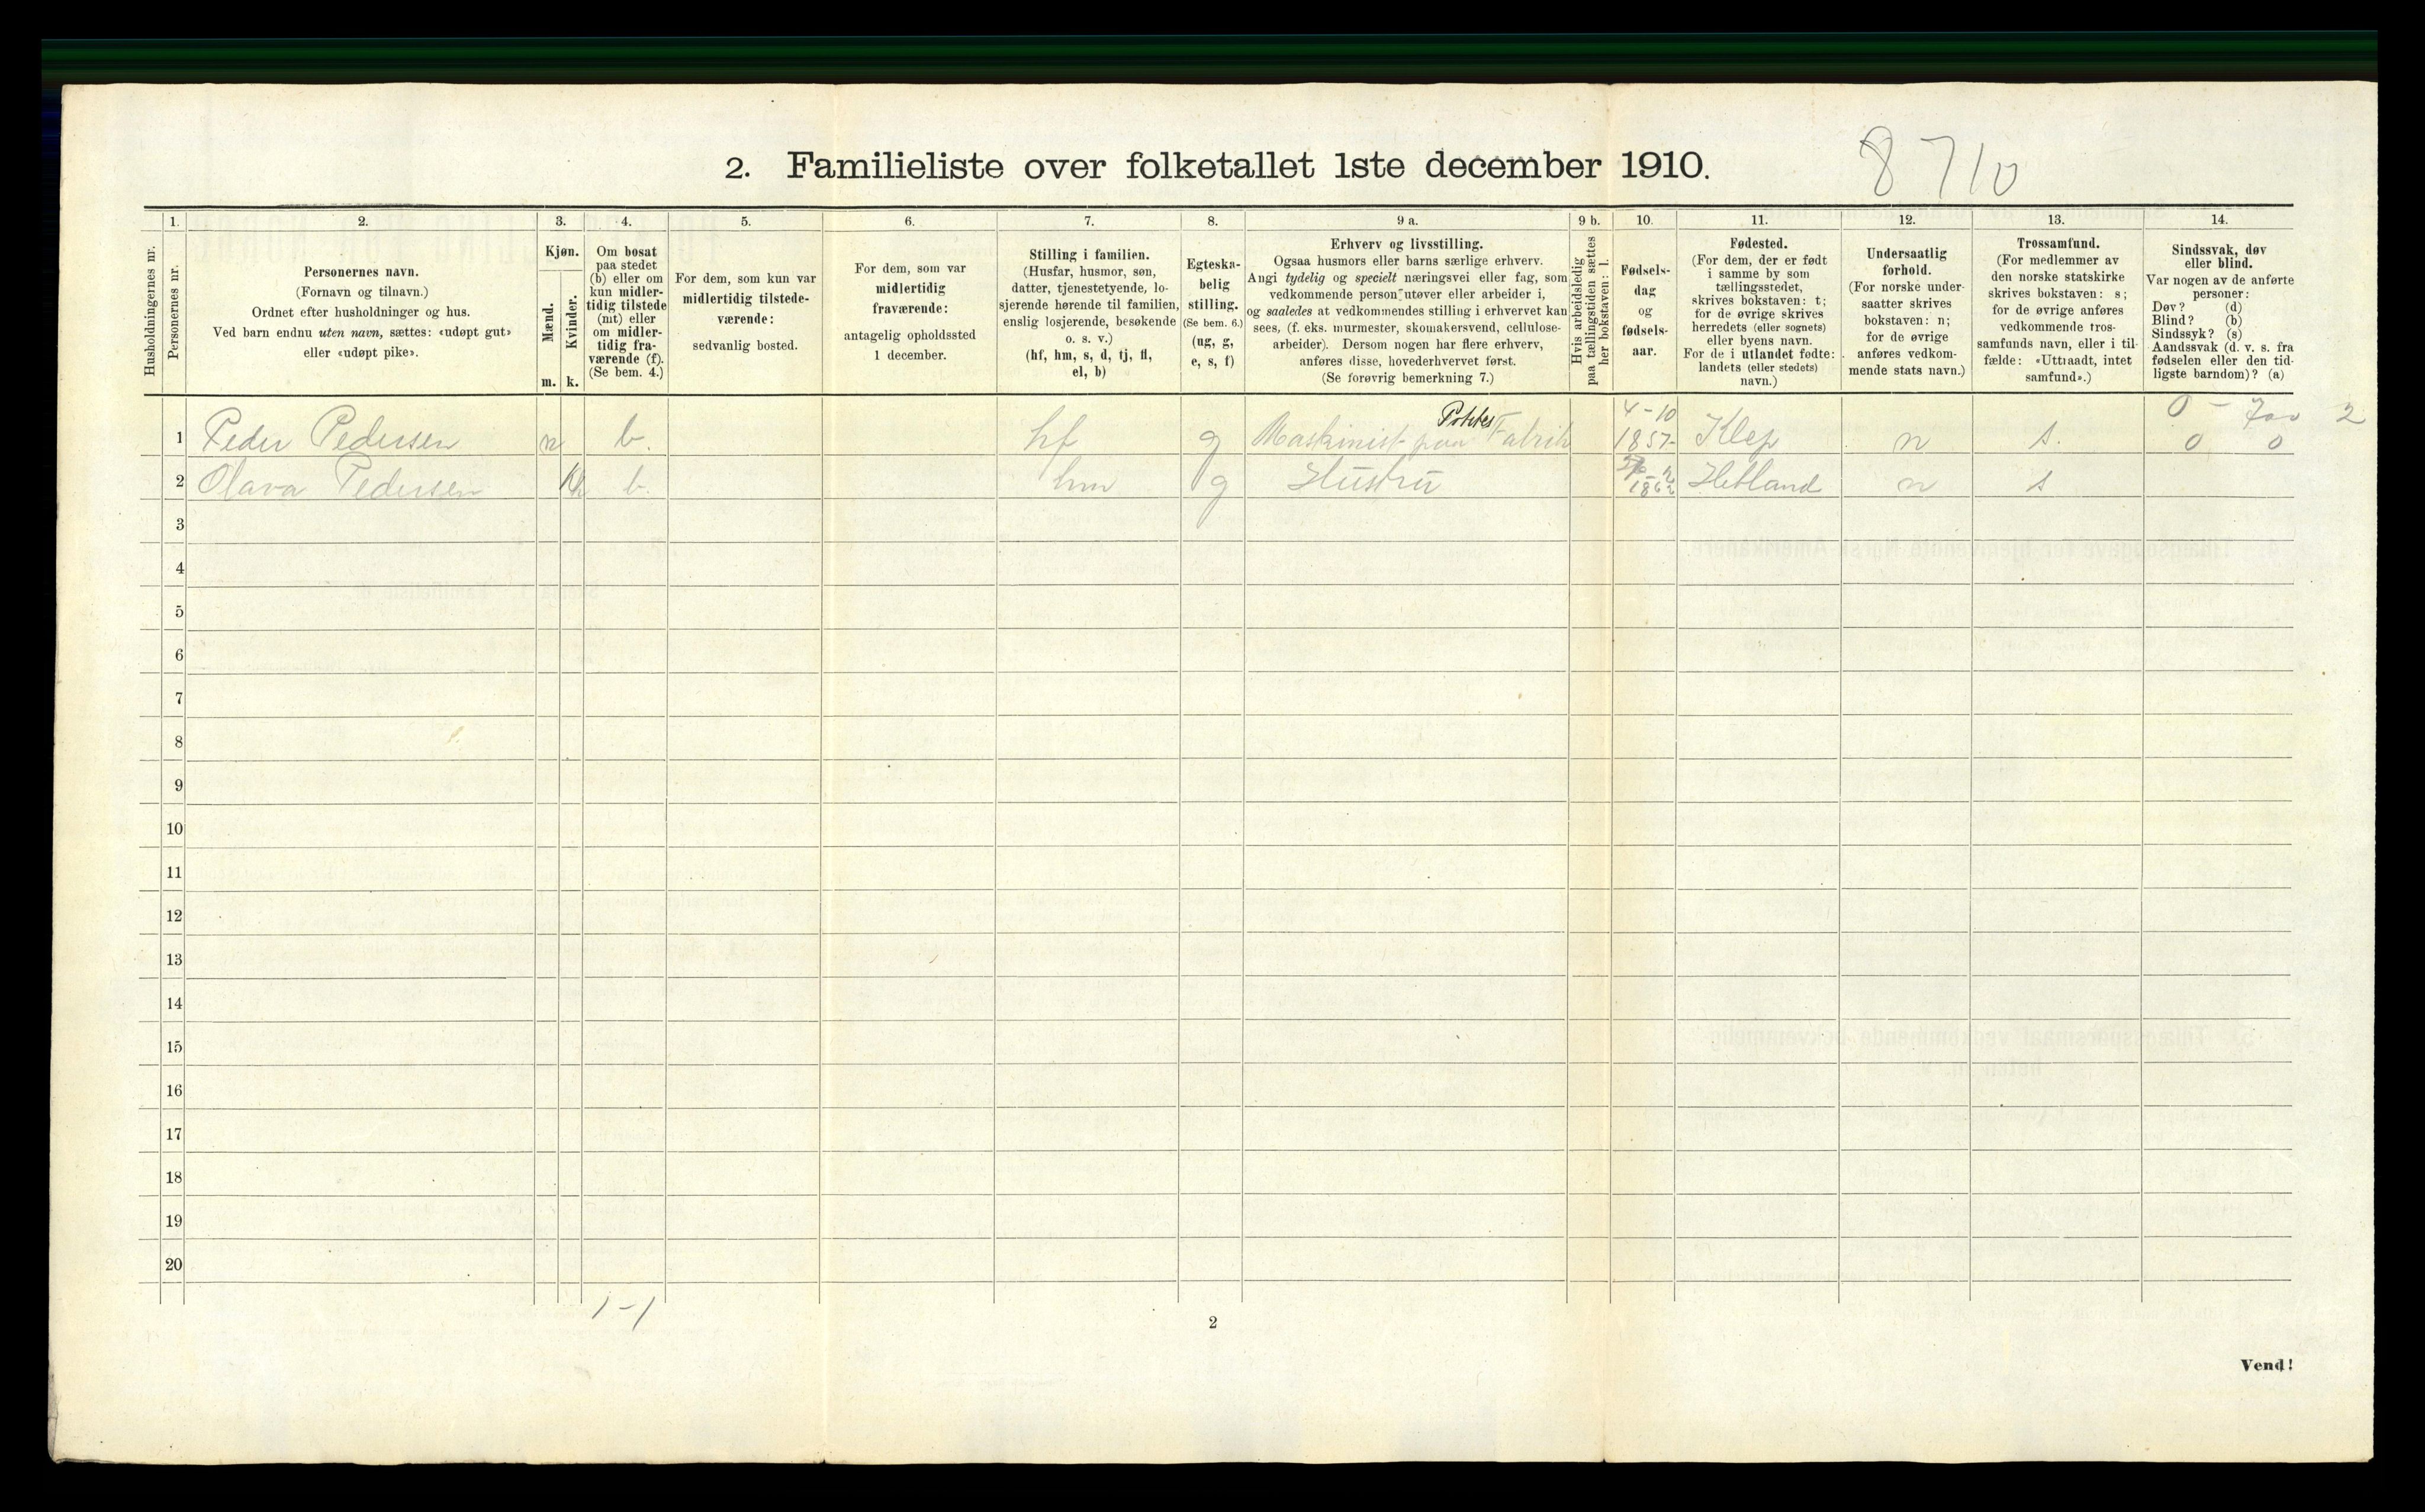 2. Familieliste over folketallet 1ste december 1910.
8710
1. 2. 3. 4. 5. 6. 7. 8. 9 a. 9 b. 10. 11. 12. 13. 14.
Husholdningernes nr.
Personernes nr.
Personernes navn.
(Fornavn og tilnavn.)
Ordnet efter husholdninger og hus.
Ved barn endnu uten navn, sættes: «udøpt gut»
eller «udøpt pike».
Kjøn.
Mænd.
Kvinder.
m. k.
Om bosat
paa stedet
(b) eller om
kun midler-
tidig tilstede
(mt) eller
om midler-
tidig fra-
værende (f).
(Se bem. 4.)
For dem, som kun var
midlertidig tilstede-
værende:
sedvanlig bosted.
For dem, som var
midlertidig
fraværende:
antagelig opholdssted
1 december.
Stilling i familien.
(Husfar, husmor, søn,
datter, tjenestetyende, lo-
sjerende hørende til familien,
enslig losjerende, besøkende
o. s. v.)
(hf, hm, s, d, tj, fl,
el, b)
Egteska-
belig
stilling.
(Se bem. 6.)
(ug, g,
e, s, f)
Erhverv og livsstilling.
Ogsaa husmors eller barns særlige erhverv.
Angi tydelig og specielt næringsvei eller fag, som
vedkommende person utøver eller arbeider i,
og saaledes at vedkommendes stilling i erhvervet kan
sees, (f. eks. murmester, skomakersvend, cellulose-
arbeider). Dersom nogen har flere erhverv,
anføres disse, hovederhvervet først.
(Se forøvrig bemerkning 7.)
Hvis arbeidsledig
paa tællingstiden sættes
her bokstaven: l.
Fødsels-
dag
og
fødsels-
aar.
Fødested.
(For dem, der er født
i samme by som
tællingsstedet,
skrives bokstaven: t;
for de øvrige skrives
herredets (eller sognets)
eller byens navn.
For de i utlandet fødte:
landets (eller stedets)
navn.)
Undersaatlig
forhold.
(For norske under-
saatter skrives
bokstaven: n;
for de øvrige
anføres vedkom-
mende stats navn.)
Trossamfund.
(For medlemmer av
den norske statskirke
skrives bokstaven: s;
for de øvrige anføres
vedkommende tros-
samfunds navn, eller i til-
fælde: «Uttraadt, intet
samfund».)
Sindssvak, døv
eller blind.
Var nogen av de anførte
personer:
Døv? (d)
Blind? (b)
Sindssyk? (s)
Aandssvak (d. v. s. fra
fødselen eller den tid-
ligste barndom)? (a)
4-10 0 - 700 2
1 Peder Pedersen m b. hf g Maskinist paa Fabrik 1857- Klep n s. 0 0
2 Olava Pedersen k b. hm g Hustru 1862 Hetland n s
3
4
5
6
7
8
9
10
11
12
13
14
15
16
17
18
19
20
1-1
2
Vend!